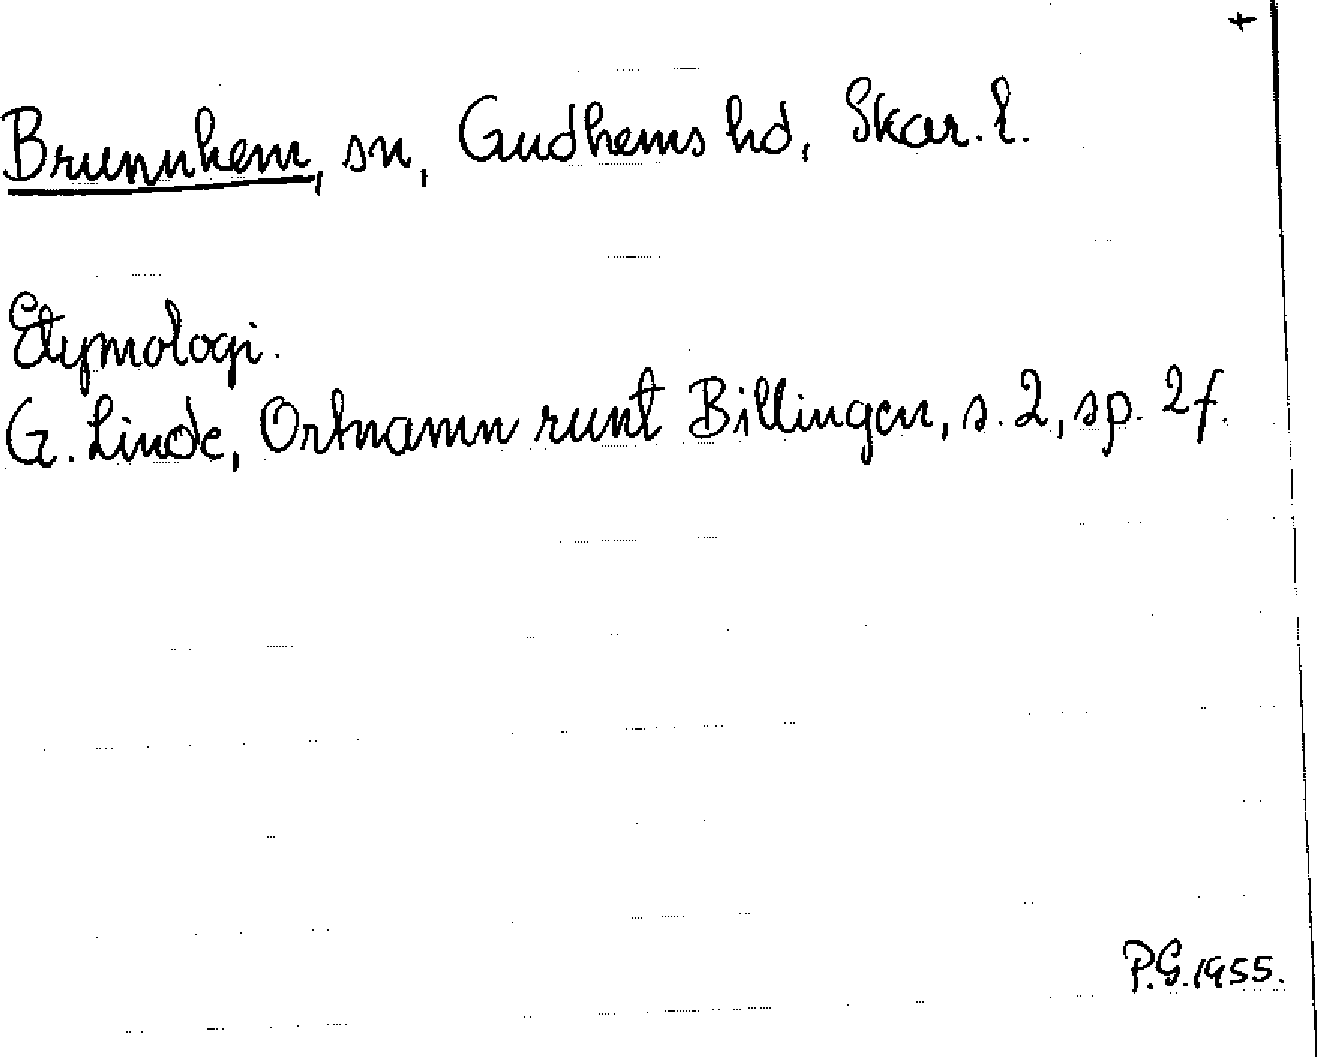 +
Brunnhem, sn, Gudhems hd, Skar. l.
Etymologi.
G. Linde, Ortnamn runt Billingen, s. 2, sp. 2 f.
P.G. 1955.